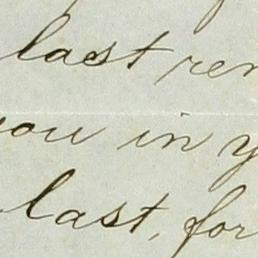 last ren
you in y
last, for